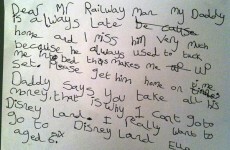 Dear Mr Railway man my Daddy
is always late because
home and I miss him very much
because he always used to tuck
me into bed this makes me up-up
set. Please get him home on time
Daddy says you take all his
money, that is why I can't go to
Disney Land. I really want to
go Disney Land
aged six